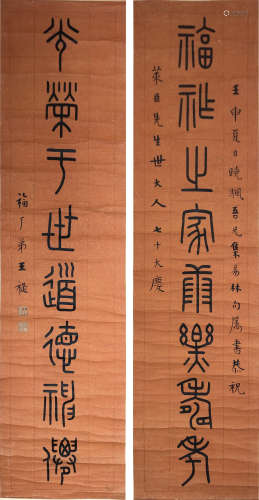 壬申夏日曉楓吾兄集易林句屬書恭祝
福祉之家康樂壽考
萊臣先生世大人七十大慶
光榮于世道德神僊
福厂弟王禔